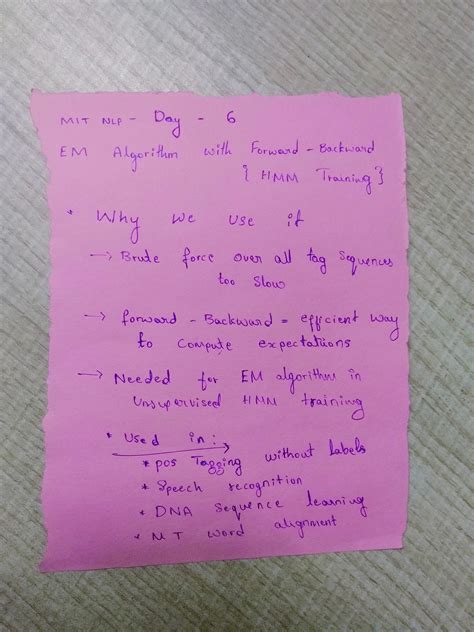 MIT NLP - Day - 6
EM Algorithm with Forward - Backward
{ HMM Training }
* Why we use it
→ Brute force over all tag sequences
too slow
→ forward - Backward = efficient way
to compute expectations
→ Needed for EM algorithm in
Unsupervised HMM training
* Used in:
* pos Tagging without labels
* Speech recognition
* DNA Sequence learning
* MT word alignment